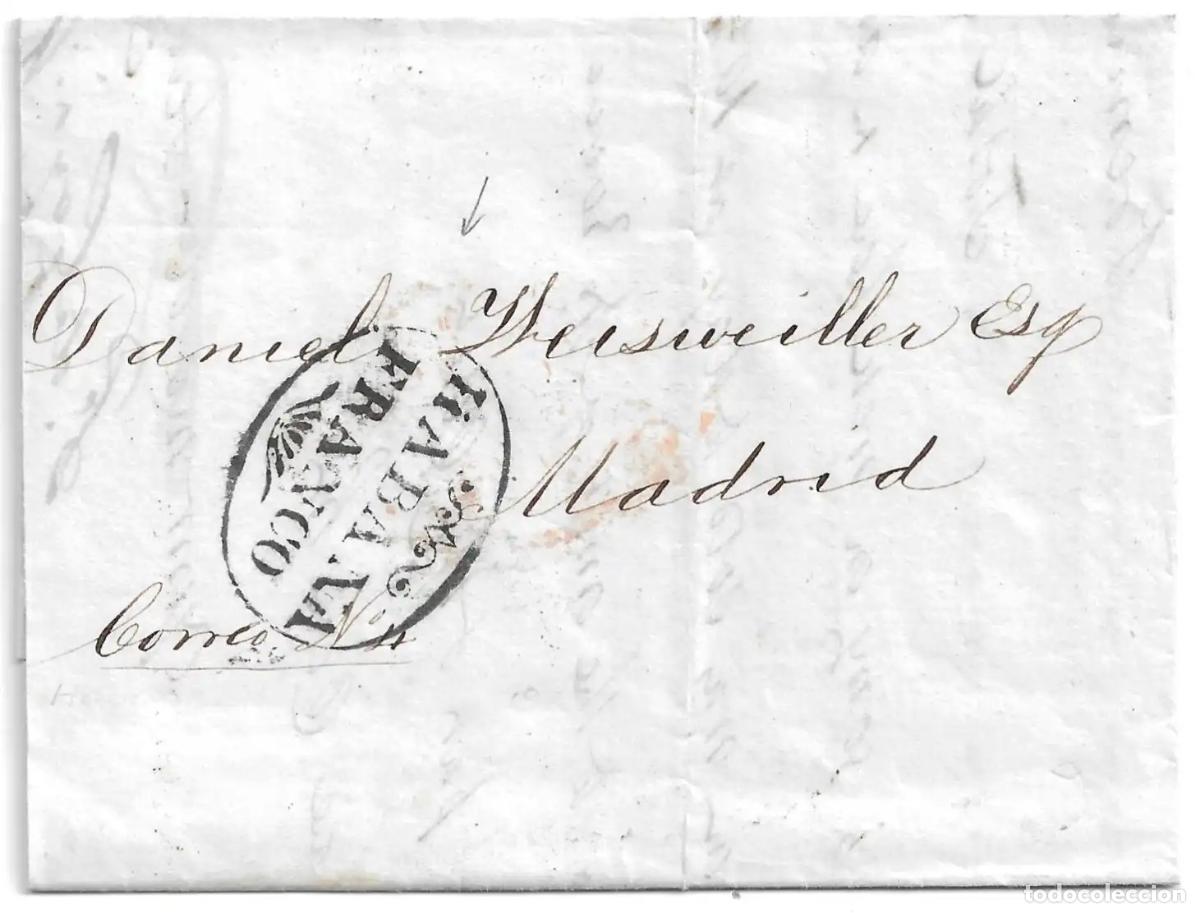 Daniel Weisweiller Esq
Madrid
HABANA
FRANCO
Correo No 4
todocoleccion